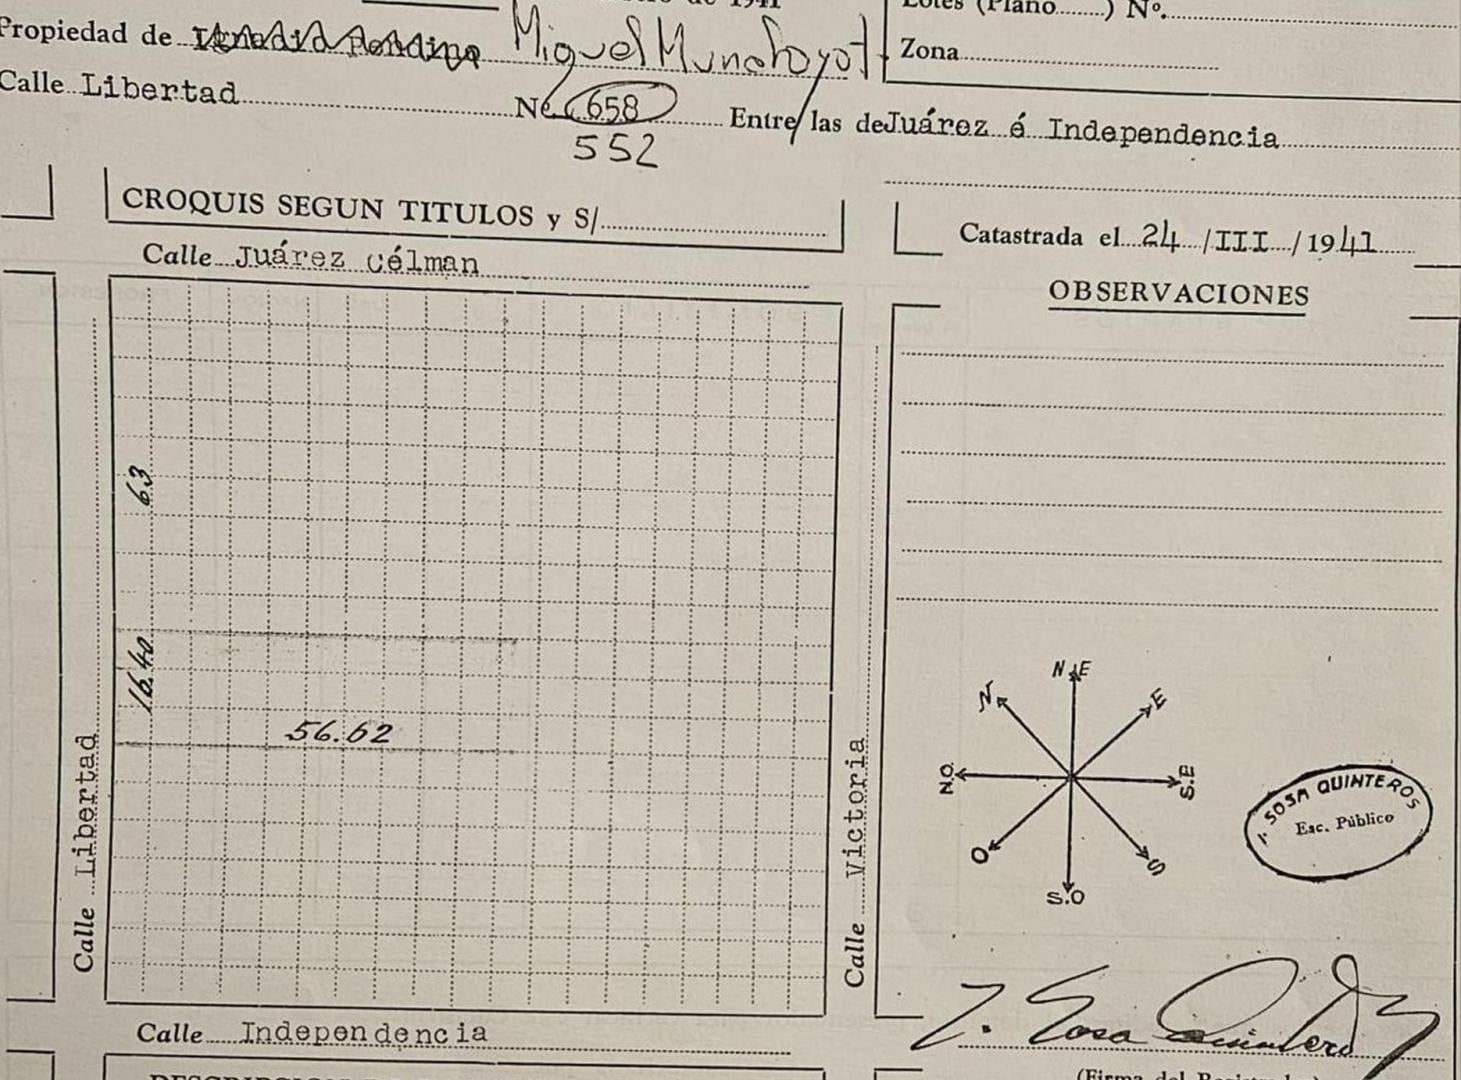 de 1941
Lotes (Plano........) Nº.
Propiedad de Miguel
Zona
Calle Libertad Nº 658 Entre las de Juárez é Independencia
552
CROQUIS SEGUN TITULOS y S/
Catastrada el 24 / III / 1941
Calle Juárez Célman
OBSERVACIONES
63
16.40
56.62
Calle Libertad
Calle Victoria
N.E
N
E
N.O.
S.E
O
S
S.O
I. SOSA QUINTEROS
Esc. Público
Calle Independencia
I. Sosa Quinteros
(Firma del